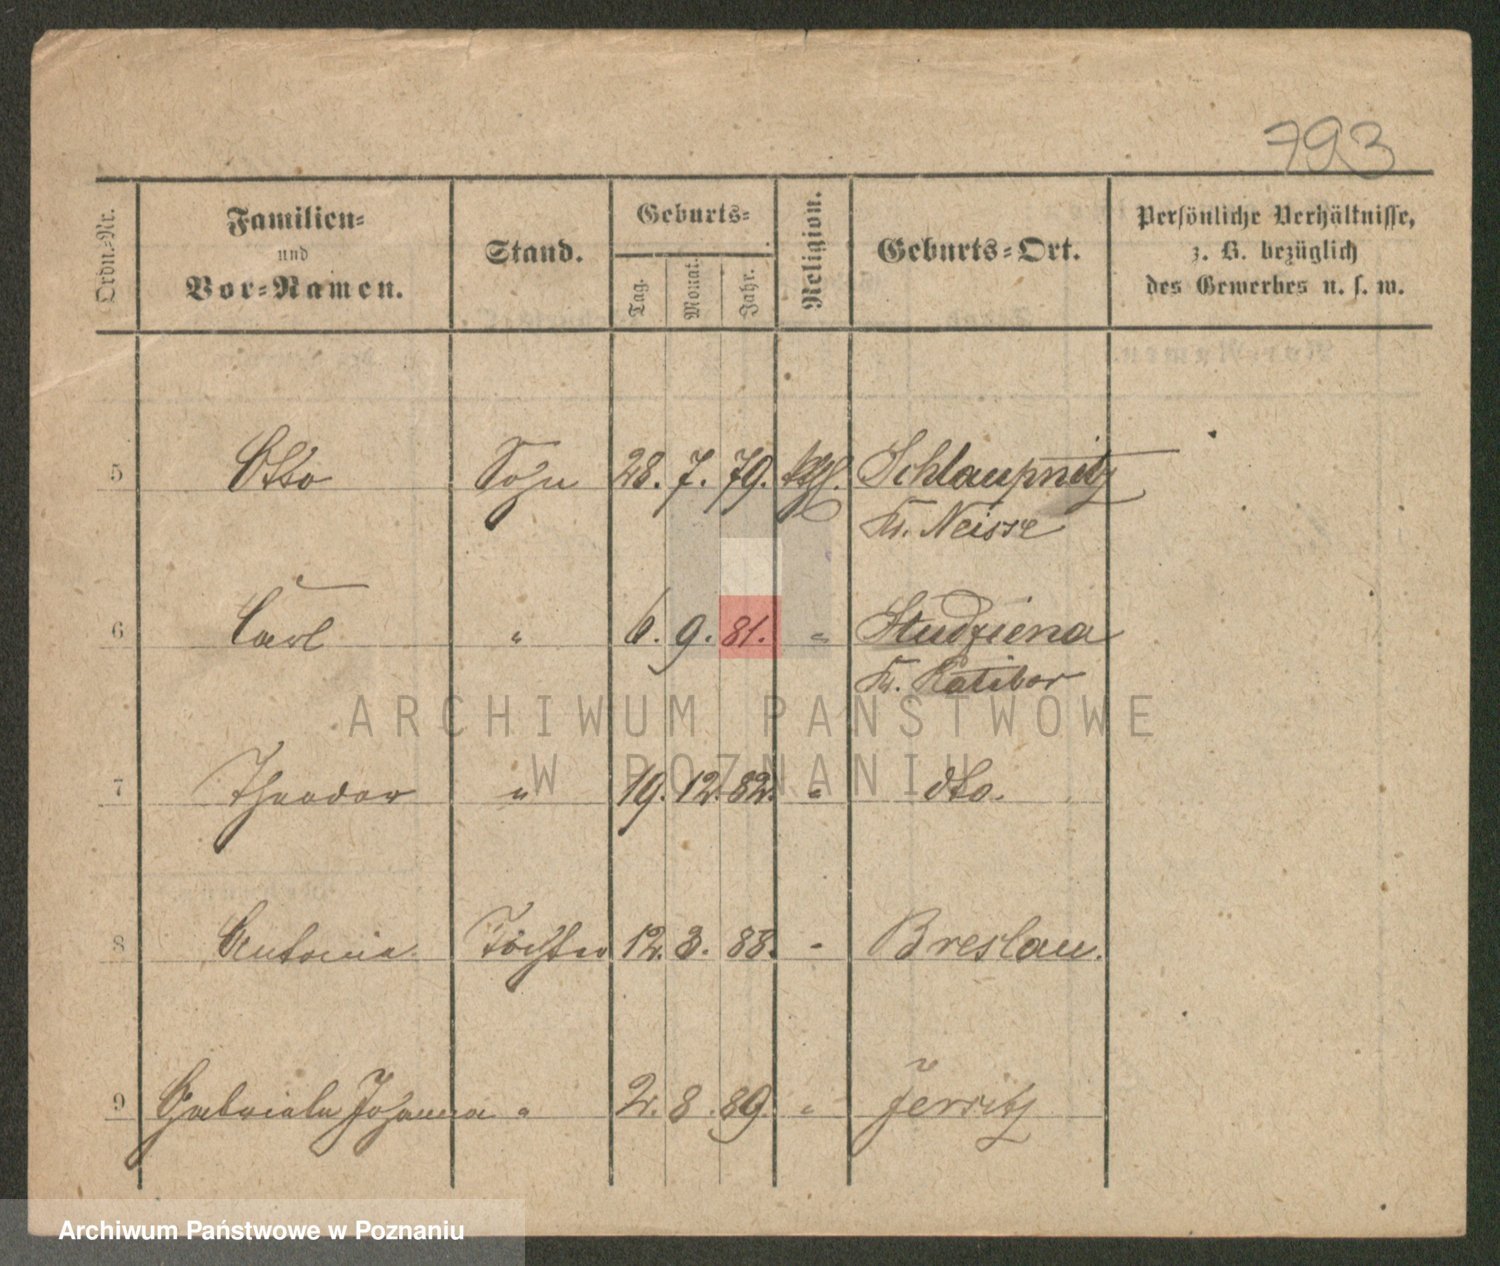 793
Ordn.-Nr.
Familien-
und
Vor-Namen.
Stand.
Geburts-
Tag.
Monat.
Jahr.
Religion.
Geburts-Ort.
Persönliche Verhältnisse,
z. B. bezüglich
des Gewerbes u. s. w.
5 Otto Sohn 28. 7. 79. kath. Schlaupnitz
Kr. Neisse
6 Carl " 6. 9. 81. " Studziena
Kr. Ratibor
ARCHIWUM PAŃSTWOWE
W POZNANIU
7 Theodor " 19. 12. 82. " dto.
8 Antonie Tochter 12. 3. 88. " Breslau.
9 Gabriele Johanna " 2. 8. 89. " Jersitz
Archiwum Państwowe w Poznaniu